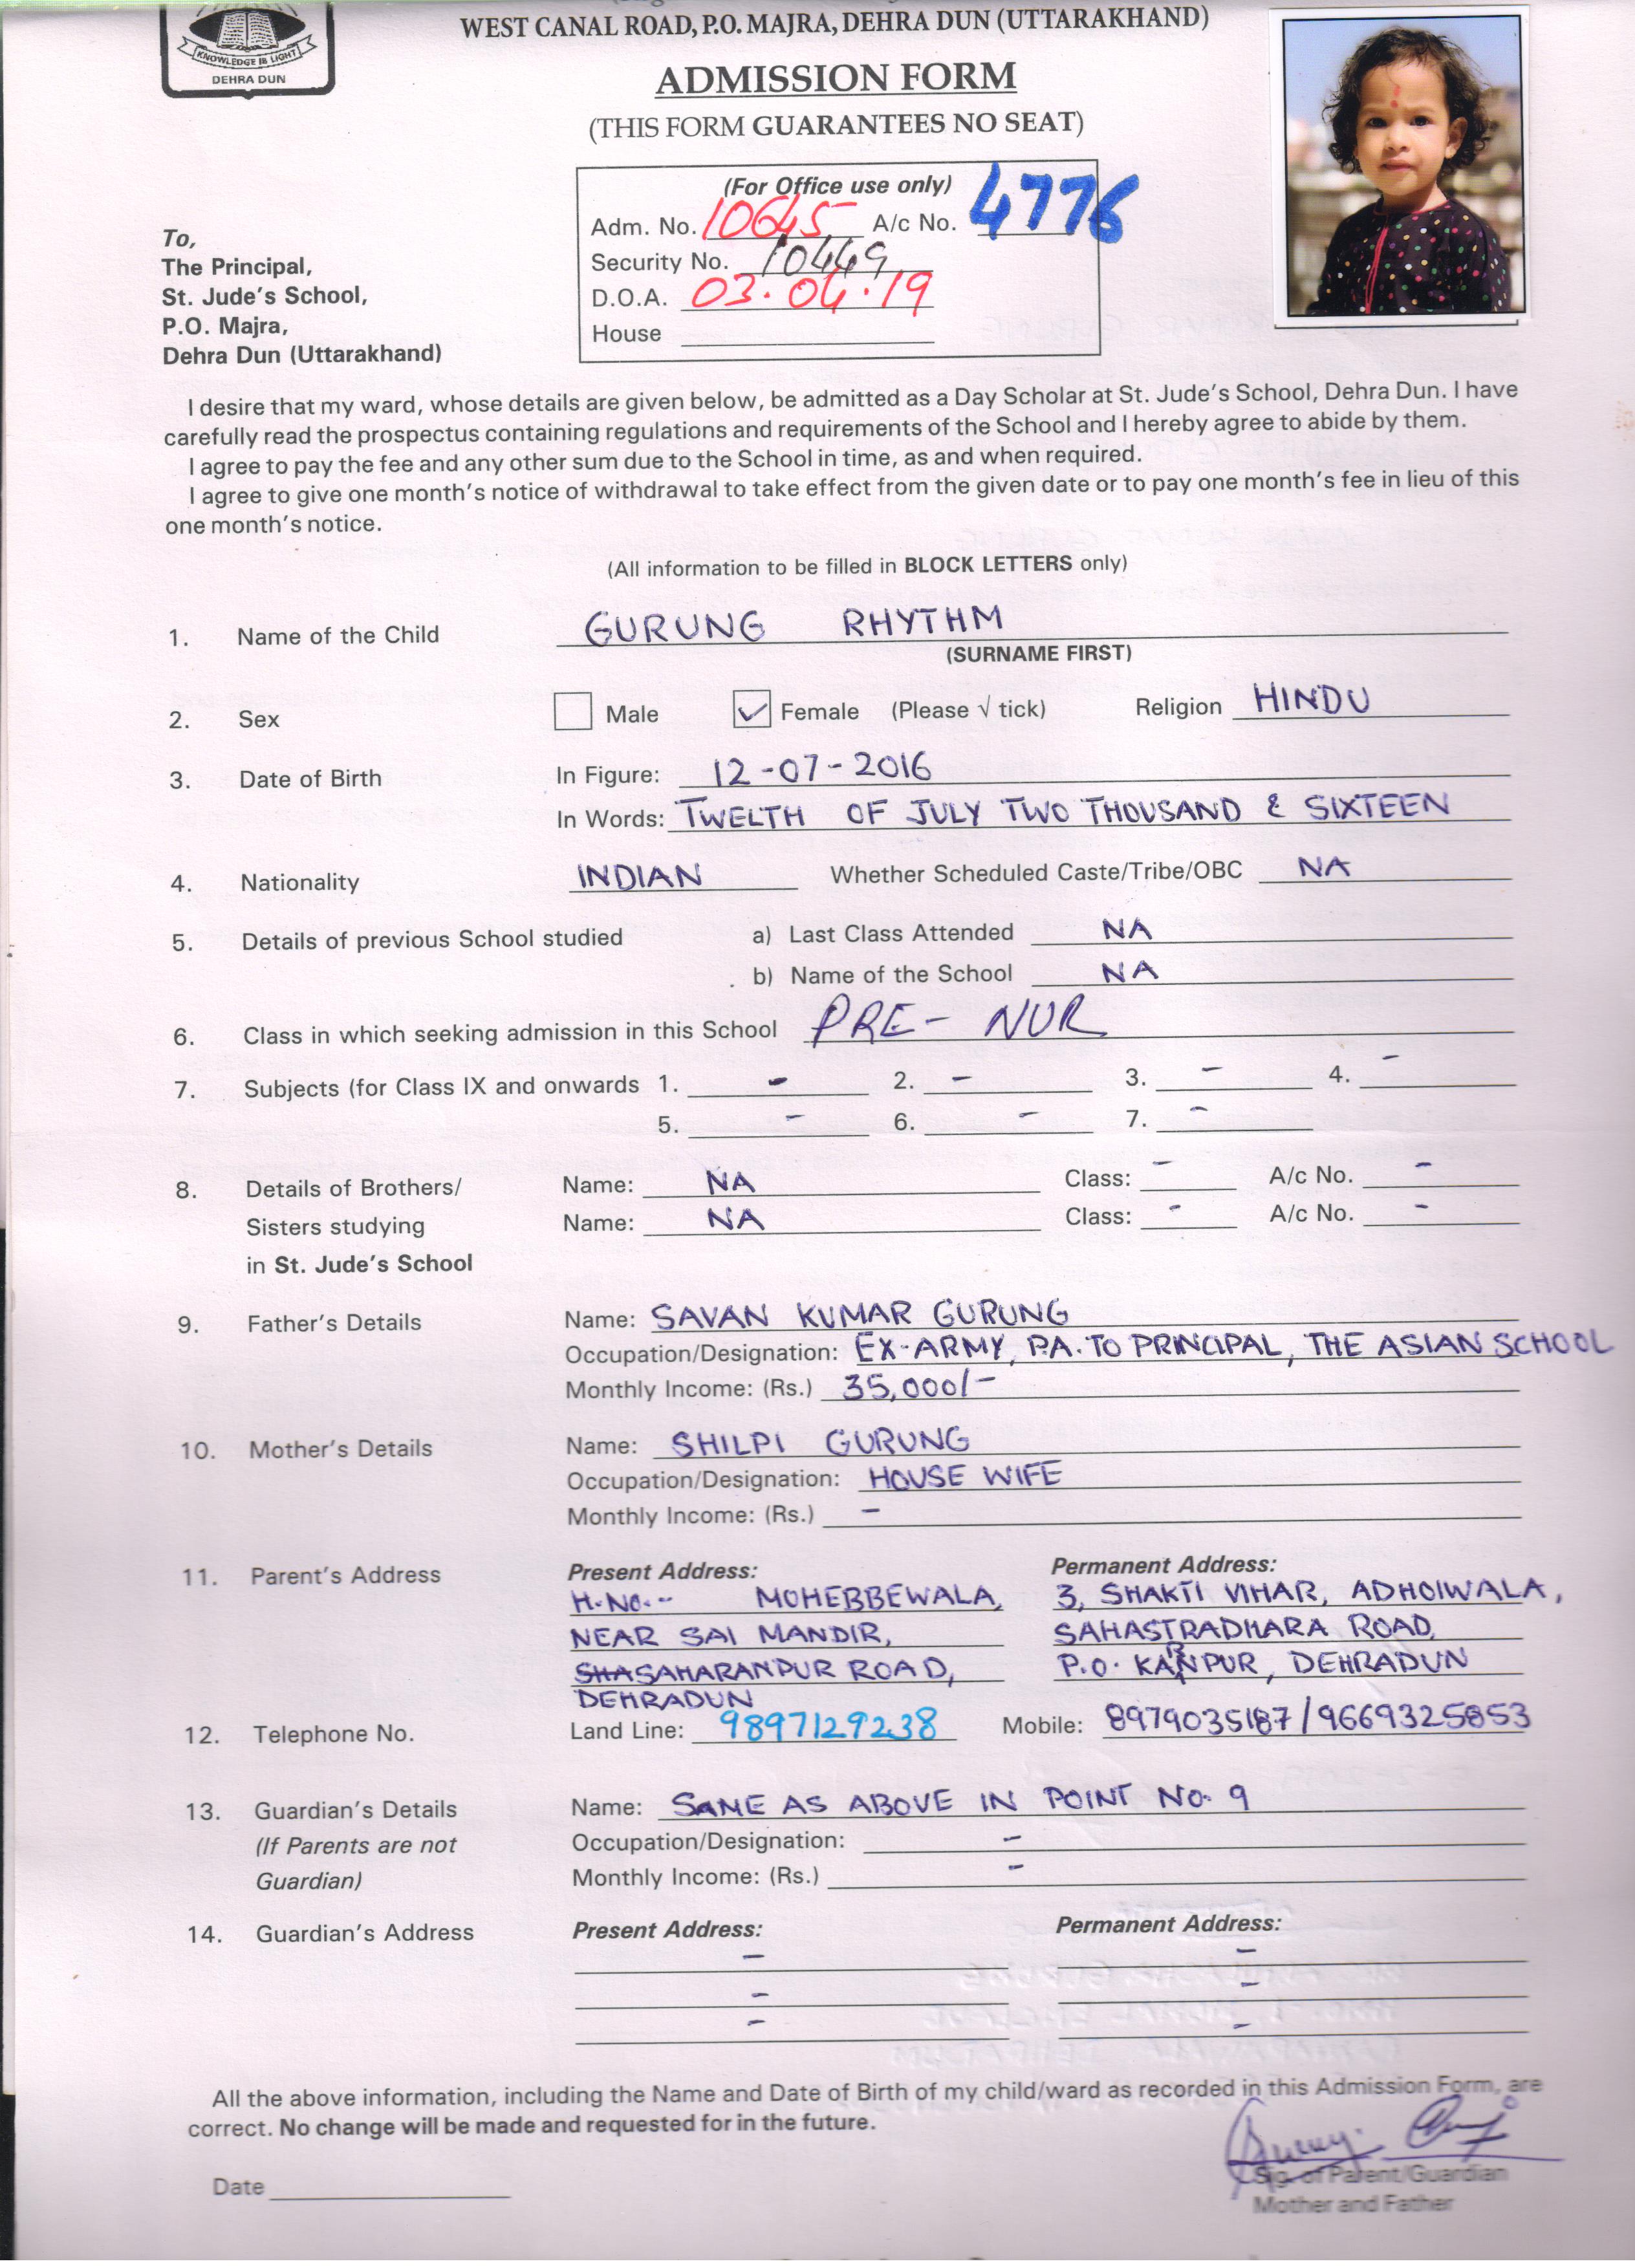 KNOWLEDGE IS LIGHT
DEHRA DUN
WEST CANAL ROAD, P.O. MAJRA, DEHRA DUN (UTTARAKHAND)
ADMISSION FORM
(THIS FORM GUARANTEES NO SEAT)
(For Office use only)
Adm. No. 10645 A/c No. 4776
Security No. 10449
D.O.A. 03.04.19
House
To,
The Principal,
St. Jude's School,
P.O. Majra,
Dehra Dun (Uttarakhand)
I desire that my ward, whose details are given below, be admitted as a Day Scholar at St. Jude's School, Dehra Dun. I have
carefully read the prospectus containing regulations and requirements of the School and I hereby agree to abide by them.
I agree to pay the fee and any other sum due to the School in time, as and when required.
I agree to give one month's notice of withdrawal to take effect from the given date or to pay one month's fee in lieu of this
one month's notice.
(All information to be filled in BLOCK LETTERS only)
1. Name of the Child GURUNG RHYTHM
(SURNAME FIRST)
2. Sex Male ✓ Female (Please √ tick) Religion HINDU
3. Date of Birth In Figure: 12-07-2016
In Words: TWELTH OF JULY TWO THOUSAND & SIXTEEN
4. Nationality INDIAN Whether Scheduled Caste/Tribe/OBC NA
5. Details of previous School studied a) Last Class Attended NA
b) Name of the School NA
6. Class in which seeking admission in this School PRE- NUR
7. Subjects (for Class IX and onwards 1. - 2. - 3. - 4. -
5. - 6. - 7. -
8. Details of Brothers/ Name: NA Class: - A/c No. -
Sisters studying Name: NA Class: - A/c No. -
in St. Jude's School
9. Father's Details Name: SAVAN KUMAR GURUNG
Occupation/Designation: EX-ARMY, P.A. TO PRINCIPAL, THE ASIAN SCHOOL
Monthly Income: (Rs.) 35,000/-
10. Mother's Details Name: SHILPI GURUNG
Occupation/Designation: HOUSE WIFE
Monthly Income: (Rs.) -
11. Parent's Address Present Address: Permanent Address:
H.No.- MOHEBBEWALA, 3, SHAKTI VIHAR, ADHOIWALA,
NEAR SAI MANDIR, SAHASTRADHARA ROAD,
SHASAHARANPUR ROAD, P.O. KARNPUR, DEHRADUN
DEHRADUN
12. Telephone No. Land Line: 9897129238 Mobile: 8979035187/9669325853
13. Guardian's Details Name: SAME AS ABOVE IN POINT NO. 9
(If Parents are not Occupation/Designation: -
Guardian) Monthly Income: (Rs.) -
14. Guardian's Address Present Address: Permanent Address:
- -
- -
- -
All the above information, including the Name and Date of Birth of my child/ward as recorded in this Admission Form, are
correct. No change will be made and requested for in the future.
Date
Sig. of Parent/Guardian
Mother and Father